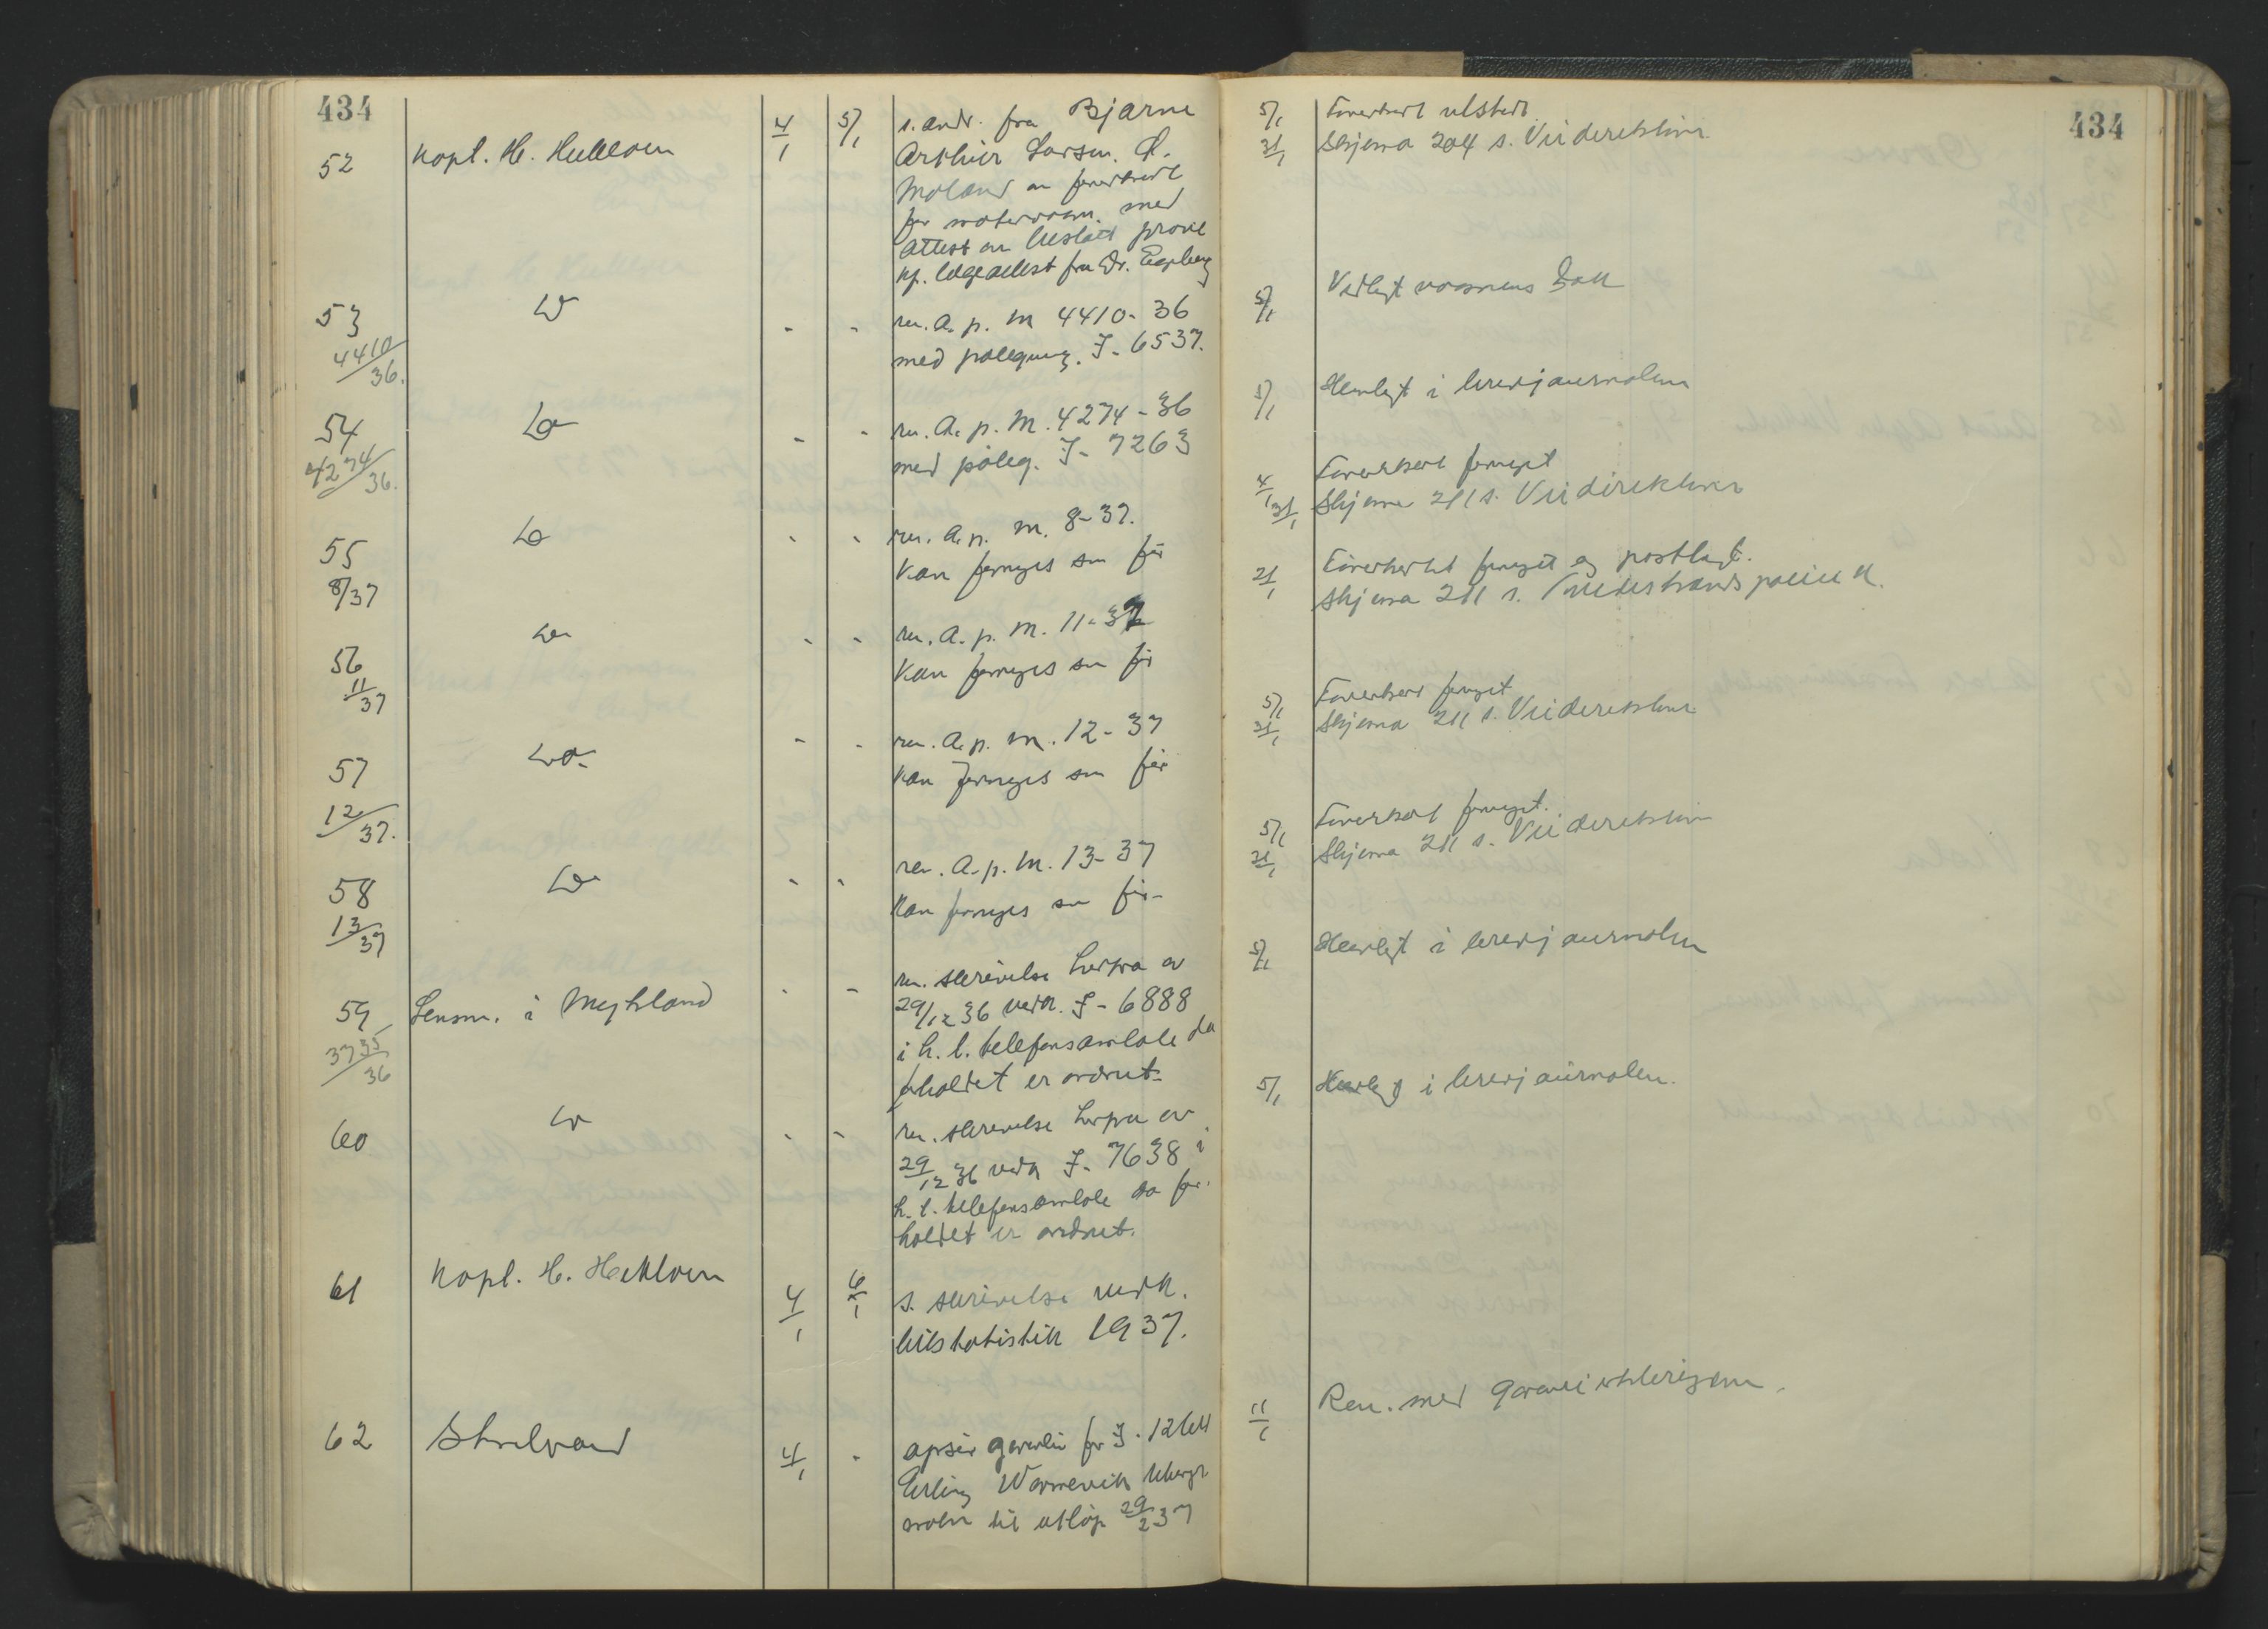 434
52 Kapt. H. Heldoen 4/1 5/1 s. andr. fra Bjarne
Arthur Larsen. A.
Moland om førerkort
for motorvogn. med
attest om bestått prøve
og. legeattest fra Dr.
53 Do - - ren. A. p. M 4410-36
4410/36. med pålegning. I- 6537.
54 Do - - ren. A. p. M. 4274-36
4274/36. med påleg. I- 7263
55 Do - - ren. A. p. m. 8-37.
8/37 Kan fornyes som før
56 Do - - ren. A. p. m. 11-37
11/37 Kan fornyes som før
57 Do - - ren. A. p. m. 12-37
12/37. Kan fornyes som før
58 Do - - ren. A. p. m. 13-37
13/37 Kan fornyes som før-
59 Lensm. i Mykland - - ren. skrivelse herfra av
3735/36 29/12 36 vedk. I- 6888
i h. t. telefonsamtale da
forholdet er ordnet-
60 Do - - ren. skrivelse herfra av
29/12 36 vedk I- 7638 i
h. t. telefonsamtale da for-
holdet er ordnet.
61 Kapt. H. Heldoen 4/1 6/1 s. skrivelse vedk.
bilstatistikk 1937.
62 Storebrand 4/1 - opsier garanti for I- 1264
Erling
til utløp 29/2 37
434
5/1 Førerkort utstedt.
31/1 Skjema 204 s. Veidirektøren
5/1 Vedlagt vognens
5/1 Henlagt i brevjournalen
4/1 Førerkort fornyet
31/1 Skjema 211 s. Veidirektøren
21/1 Førerkortet fornyet og postlagt.
skjema 211 s. Tvedestrands politik.
5/1 Førerkort fornyet
31/1 Skjema 211 s. Veidirektøren
5/1 Førerkort fornyet.
31/1 Skjema 211 s. Veidirektøren
5/1 Henlagt i brevjournalen
5/1 Henlagt i brevjournalen.
11/1 Ren. med garantierklæringen.